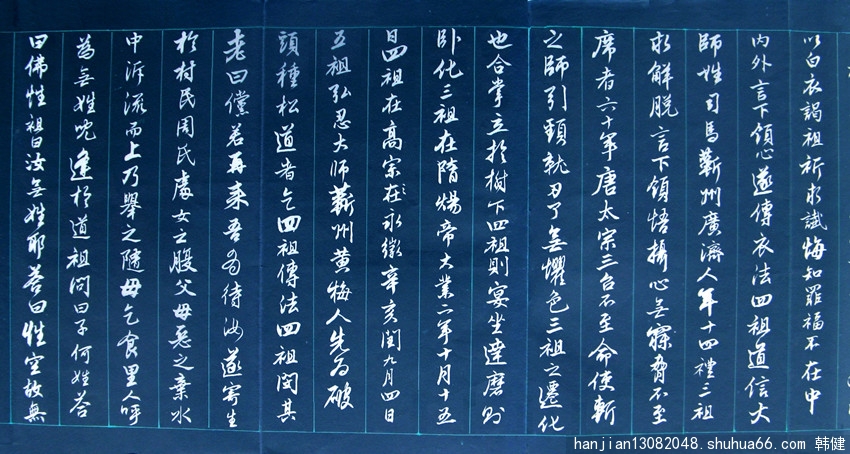 以白衣謁祖祈求懺悔知罪福不在中
內外言下領心遂傳衣法四祖道信大
師姓司馬蘄州廣濟人年十四禮三祖
求解脫言下領悟攝心無寐脅不至
席者六十年唐太宗三召不至命使斬
之師引頸就刃了無懼色三祖之遷化
也合掌立於樹下四祖則宴坐達磨則
臥化三祖在隋煬帝大業二年十月十五
日四祖在高宗在永徽辛亥閏九月四日
五祖弘忍大師蘄州黃梅人先為破
頭種松道者乞四祖傳法四祖閔其
老曰儻若再來吾為待汝遂寄生
於村民周氏處女之腹父母惡之棄水
中泝流而上乃舉之隨母乞食里人呼
為無姓呢逢於道祖問曰子何姓答
曰佛性祖曰汝無姓耶答曰性空故無
hanjian13082048.shuhua66.com 韩健